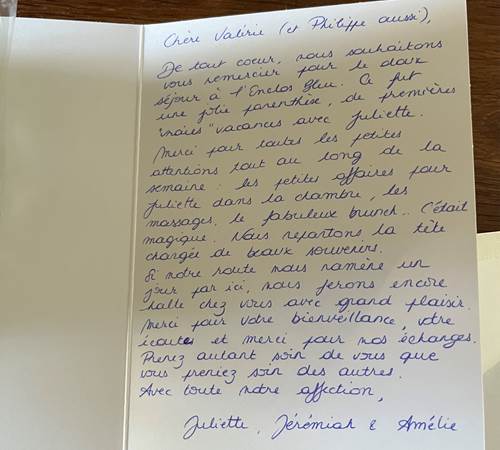 Chère Valérie (et Philippe aussi),
De tout coeur, nous souhaitons
vous remercier pour le doux
séjour à l'Enclos Bleu. Ce fut
une jolie parenthèse, de premières
"vraies" vacances avec Juliette.
Merci pour toutes les petites
attentions tout au long de la
semaine : les petites affaires pour
Juliette dans la chambre, les
massages, le fabuleux brunch... C'était
magique. Nous repartons la tête
chargée de beaux souvenirs.
Si notre route nous ramène un
jour par ici, nous ferons encore
halte chez vous avec grand plaisir.
Merci pour votre bienveillance, votre
écoute et merci pour nos échanges.
Prenez autant soin de vous que
vous preniez soin des autres.
Avec toute notre affection,
Juliette, Jérémiah & Amélie